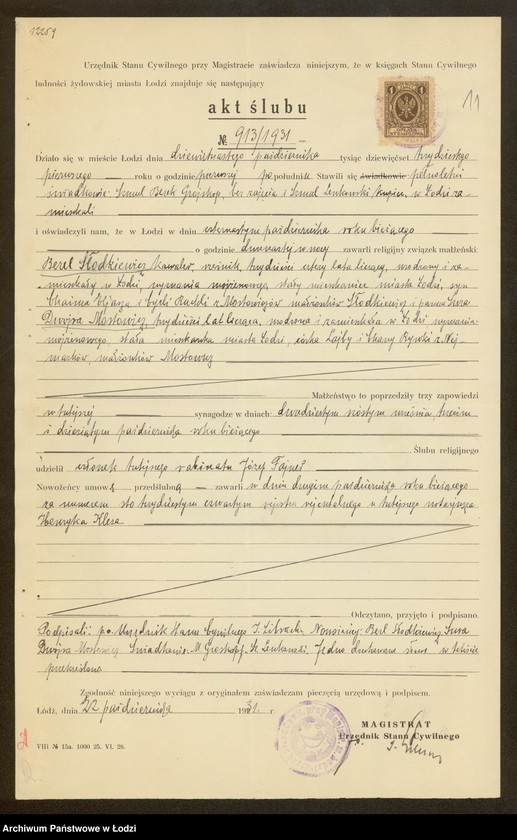 12259
Urzędnik Stanu Cywilnego przy Magistracie zaświadcza niniejszym, że w księgach Stanu Cywilnego
ludności żydowskiej miasta Łodzi znajduje się następujący
akt ślubu
11
№ 913/1931
Działo się w mieście Łodzi dnia dziewiętnastego października tysiąc dziewięćset trzydziestego
pierwszego roku o godzinie pierwszej po południu. Stawili się świadkowie pełnoletni
świadkowie: Szmul Berek bez zajęcia i Szmul Lenkowski w Łodzi za-
mieszkali
i oświadczyli nam, że w Łodzi w dniu października roku bieżącego
o godzinie dwunastej w nocy zawarli religijny związek małżeński:
Berel Słodkiewicz kawaler, trzydzieści cztery lata liczący, urodzony i za-
mieszkały w Łodzi, wyznania mojżeszowego, stały mieszkaniec miasta Łodzi, syn
Chaima Eljasza i Ruchli z Mostowiczów małżonków Słodkiewicz i panna Sura
Dwojra Mostowicz, trzydzieści lat licząca, urodzona i zamieszkała w Łodzi wyznania
mojżeszowego stała mieszkanka miasta Łodzi, córka Lajby i Chany Rywki z
małżonków Mostowicz
Małżeństwo to poprzedziły trzy zapowiedzi
w tutejszej synagodze w dniach: dwudziestym szóstym września, trzecim
i dziesiątym października roku bieżącego
Ślubu religijnego
udzielił członek tutejszego rabinatu Józef Fajner
Nowożeńcy umowę przedślubną zawarli w dniu drugim października roku bieżącego
za numerem sto trzydziestym czwartym rejestru rejentalnego u tutejszego notarjusza
Henryka
Odczytano, przyjęto i podpisano.
Podpisali: p.o. Urzędnik Stanu Cywilnego Nowożeńcy: Berl Słodkiewicz, Sura
Dwojra Mostowicz Świadkowie: M Lenkowski. Jedno słowo w tekście
przekreślono
Zgodność niniejszego wyciągu z oryginałem zaświadczam pieczęcią urzędową i podpisem.
Łódź, dnia 22 października 1931. r.
MAGISTRAT
Urzędnik Stanu Cywilnego
VIIi № 15a. 1000 25. VI. 28.
Archiwum Państwowe w Łodzi